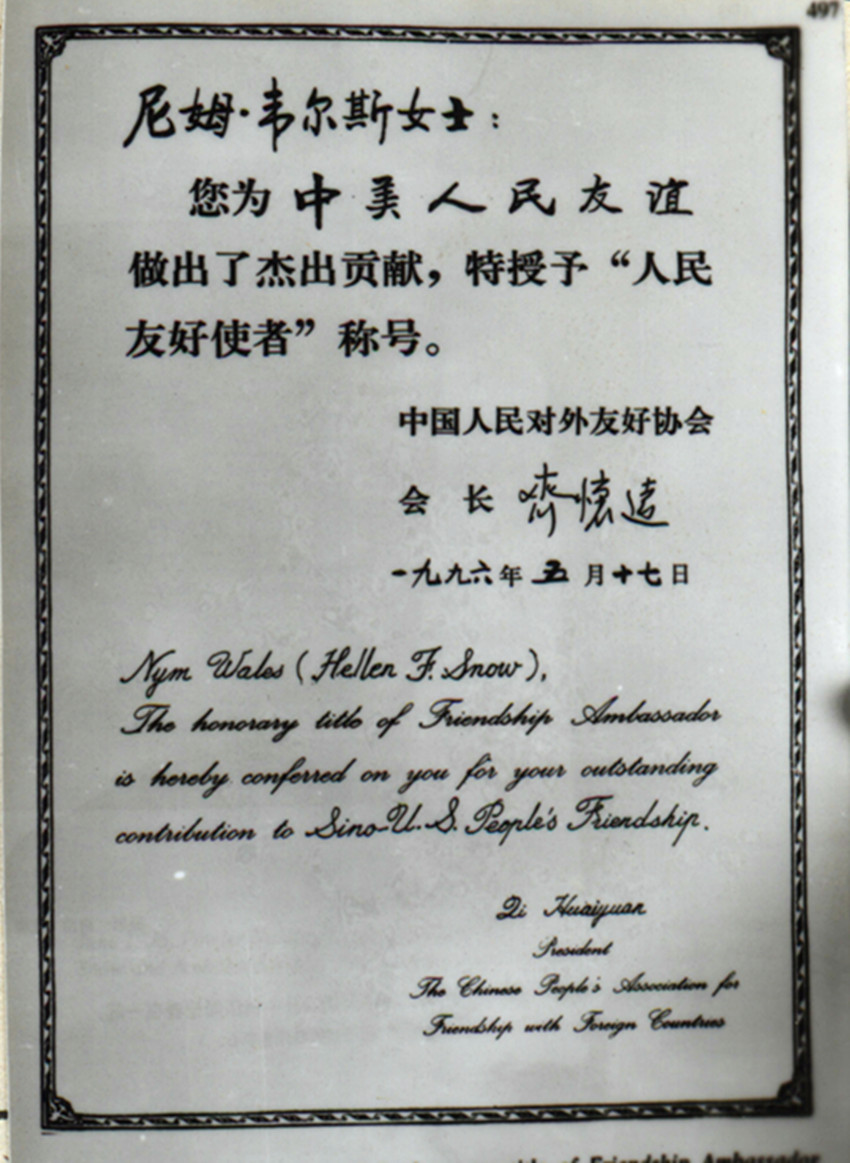 497
尼姆·韦尔斯女士：
您为中美人民友谊
做出了杰出贡献，特授予“人民
友好使者”称号。
中国人民对外友好协会
会 长 齐怀远
一九九六年五月十七日
Nym Wales (Hellen F. Snow),
The honorary title of Friendship Ambassador
is hereby conferred on you for your outstanding
contribution to Sino-U.S. People's Friendship.
Qi Huaiyuan
President
The Chinese People's Association for
Friendship with Foreign Countries
of Friendship Ambassador